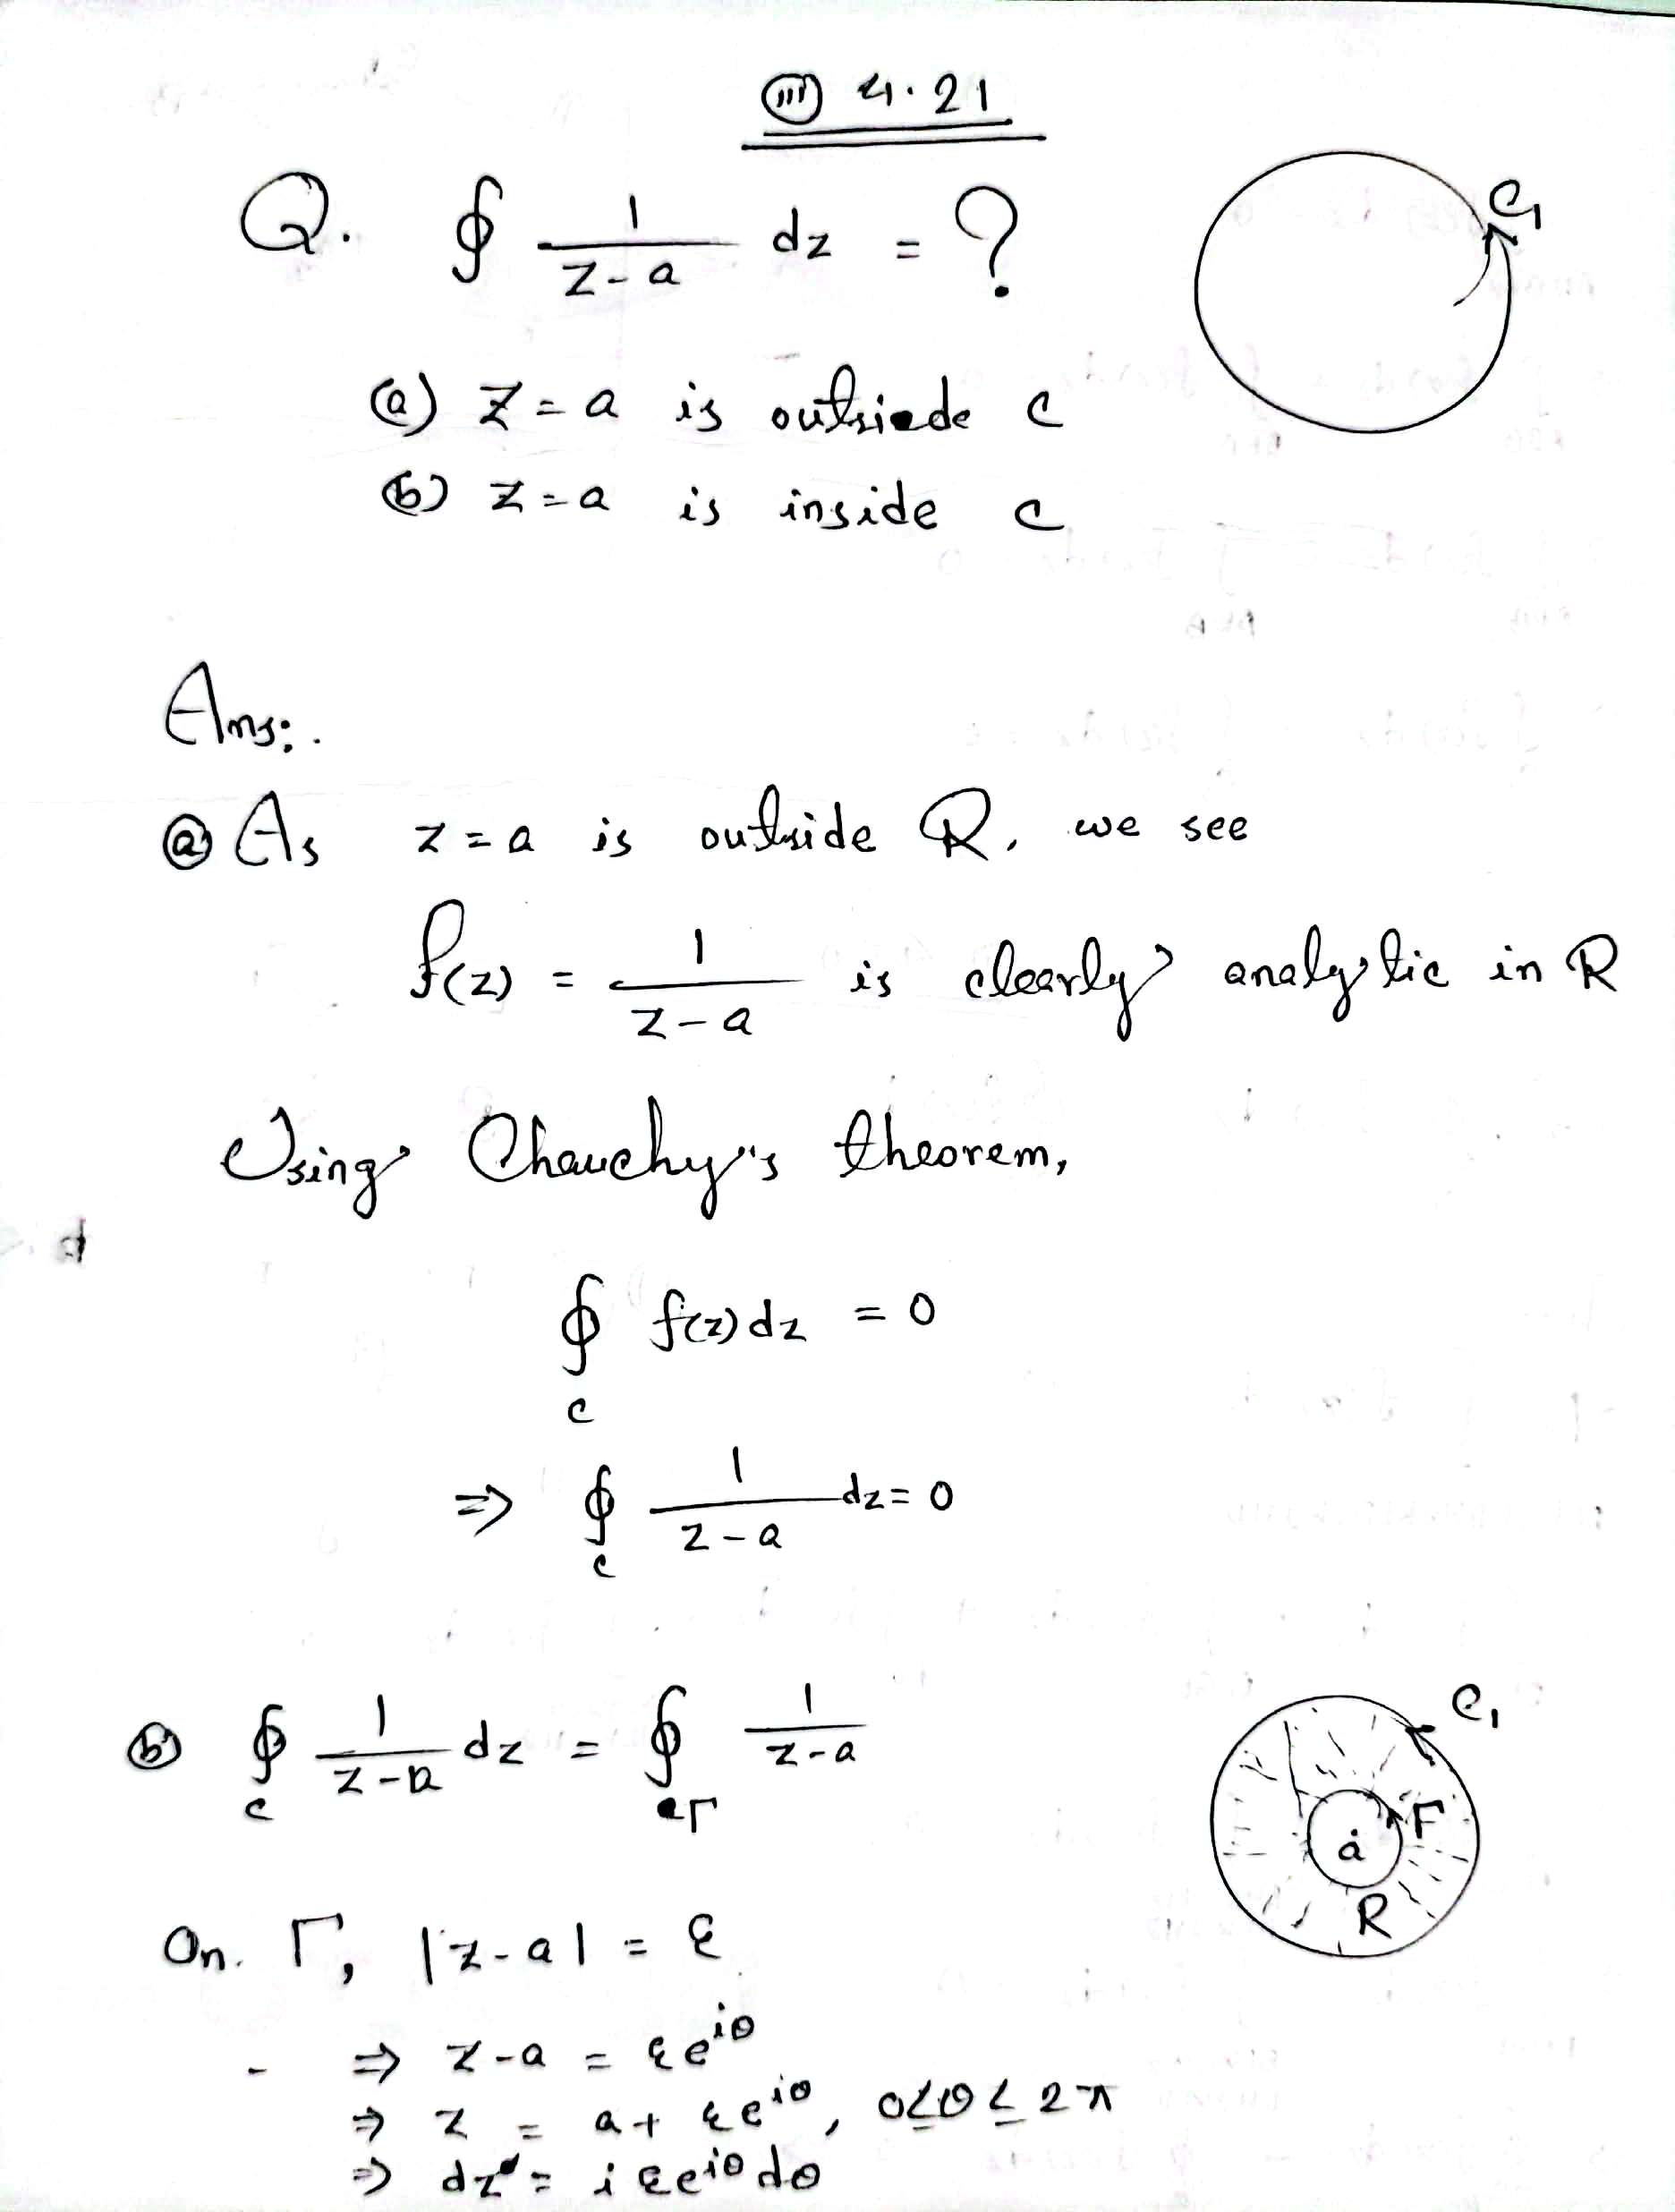 (iii) 4.21
Q. ∮ 1/(z-a) dz = ?
C₁
(a) z = a is outsiede c
(b) z = a is inside c
Ans:.
(a) As z = a is outside R, we see
f(z) = 1/(z-a) is clearly analytic in R
Using Chauchy's theorem,
∮_c f(z) dz = 0
=> ∮_c 1/(z-a) dz = 0
(b) ∮_c 1/(z-a) dz = ∮_Γ 1/(z-a)
C₁
Γ
a
R
On. Γ, |z-a| = ε
=> z-a = εe^{iθ}
=> z = a + εe^{iθ}, 0≤θ≤2π
=> dz = iεe^{iθ}dθ